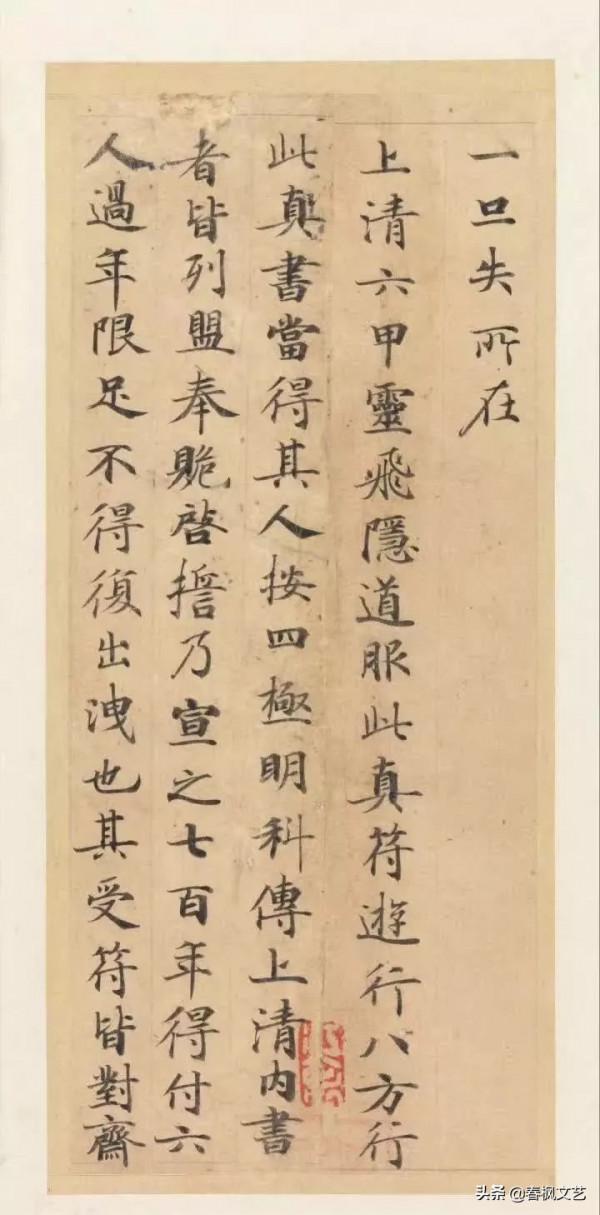 一旦失所在
上清六甲靈飛隱道服此真符遊行八方行
此真書當得其人按四極明科傳上清內書
者皆列盟奉貺啓誓乃宣之七百年得付六
人過年限足不得復出洩也其受符皆對齋
头条@春枫文艺